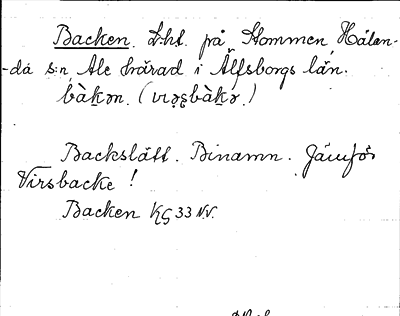 Backen. Lht. på Kommen, Hålan-
-da s:n, Ale härad i Älfsborgs län.
bàkən. (vɩəʂbàkə.)
Backslätt. Binamn. Jämför
Virsbacke!
Backen KG 33 NV.